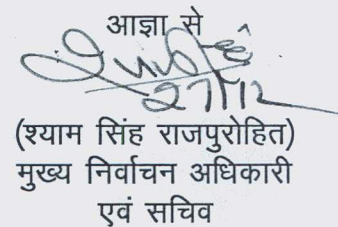 आज्ञा से
27/12
(श्याम सिंह राजपुरोहित)
मुख्य निर्वाचन अधिकारी
एवं सचिव